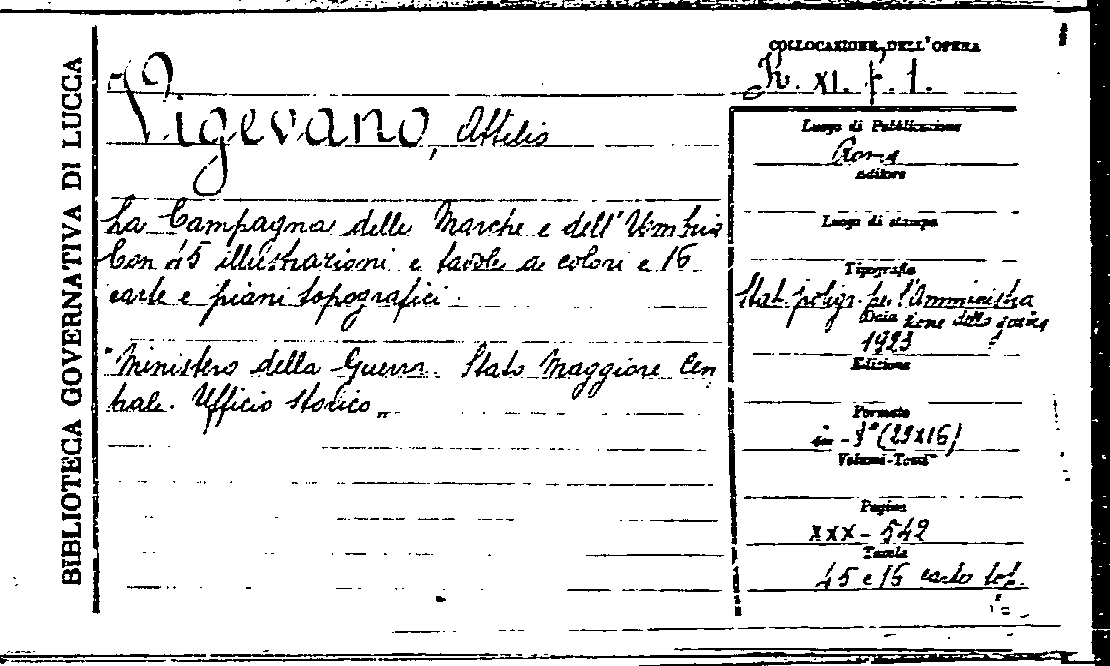 BIBLIOTECA GOVERNATIVA DI LUCCA
Vigevano, Attilio
La Campagna delle Marche e dell'Umbria
Con 45 illustrazioni e tavole a colori e 16
carte e piani topografici.
"Ministero della Guerra. Stato Maggiore Cen
trale. Ufficio storico„
COLLOCAZIONE DELL'OPERA
XI. f. 1.
Luogo di Pubblicazione
Roma
Editore
Luogo di stampa
Tipografia
Stab. poligr. per l'Amministra
zione della guerra
Data
1923
Edizione
Formato
in-8° (23x16)
Volumi-Tomi
Pagine
XXX - 542
Tavole
45 e 16 carte top.